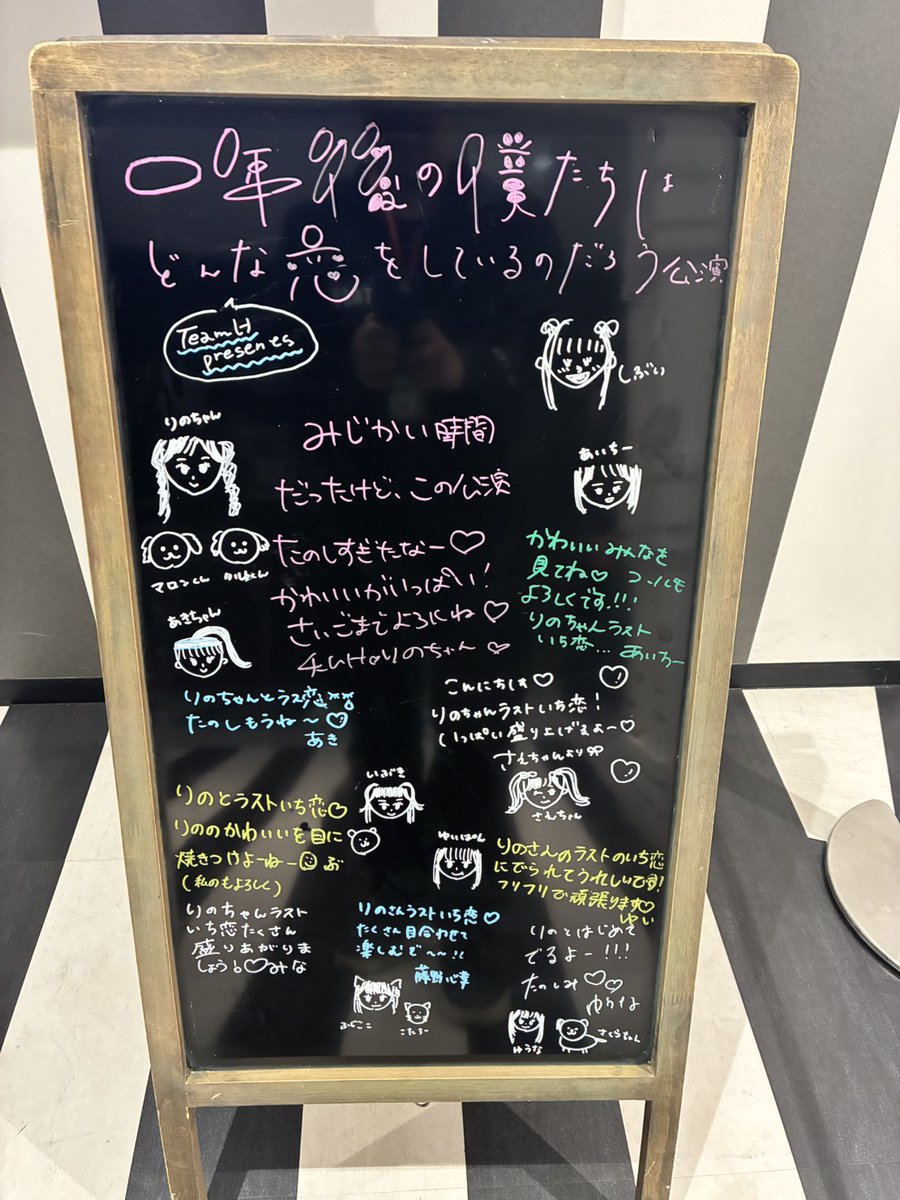 一〇年後の僕たちは
どんな恋をしているのだろう公演
TeamH
presents
しぶい
りのちゃん
みじかい時間
だったけど、この公演
たのしすぎたなー♡
かわいいがいっぱい!
さいごまでよろしくね♡
りのちゃん♡
あいちー
かわいいみんなを
見てね♡ コールも
よろしくです!!!
りのちゃんラスト
いち恋… あいちー
マロンくん
あきちゃん
りのちゃんとラスト恋
たのしもうね〜♡
あき
こんにちは♡
りのちゃんラストいち恋!
いっぱい盛り上げるよー♡
さえちゃんより
さえちゃん
いぶき
りのとラストいち恋♡
りののかわいいを目に
焼きつけよーねー ぶ
(私のもよろしく)
ゆいぱん
りのさんのラストのいち恋
にでられてうれしいです!
フリフリで頑張ります♡
ゆい
りのちゃんラスト
いち恋たくさん
盛りあがりま
しょう!♡みな
りのさんラストいち恋♡
たくさん目合わせて
楽しむで〜〜!!
藤野心葉
ふじここ
こたろー
りのとはじめて
でるよー!!!
たのしみ♡♡
ゆうな
ゆうな
さくらちゃん